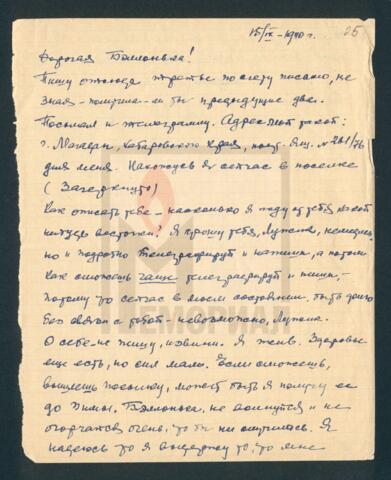 15/IX-1940 г.
25
Дорогая Бэллонька!
Пишу отсюда третье по счету письмо, не
зная - получила ли ты предыдущие два.
Посылал и телеграмму. Адрес мой такой:
г. Магадан, Хабаровского края, почт. ящ. № 261/76
для меня. Нахожусь я сейчас в поселке
(Зачеркнуто)
Как описать тебе - насколько я жду от тебя какой
нибудь весточки? Я прошу тебя, Лужена, немедлен-
но и подробно телеграфируй и напиши, а потом
как сможешь чаще телеграфируй и пиши, -
потому что сейчас в моем состоянии быть долго
без связи с тобой - невозможно, Лужена.
О себе не пишу, извини. Я жив. Здоровье
еще есть, но сил мало. Если сможешь,
вышлешь посылку, может быть я получу ее
до зимы. Бэллонька, не волнуйся и не
огорчайся очень, что бы ни случилось. Я
надеюсь что я выдержу то, что мне